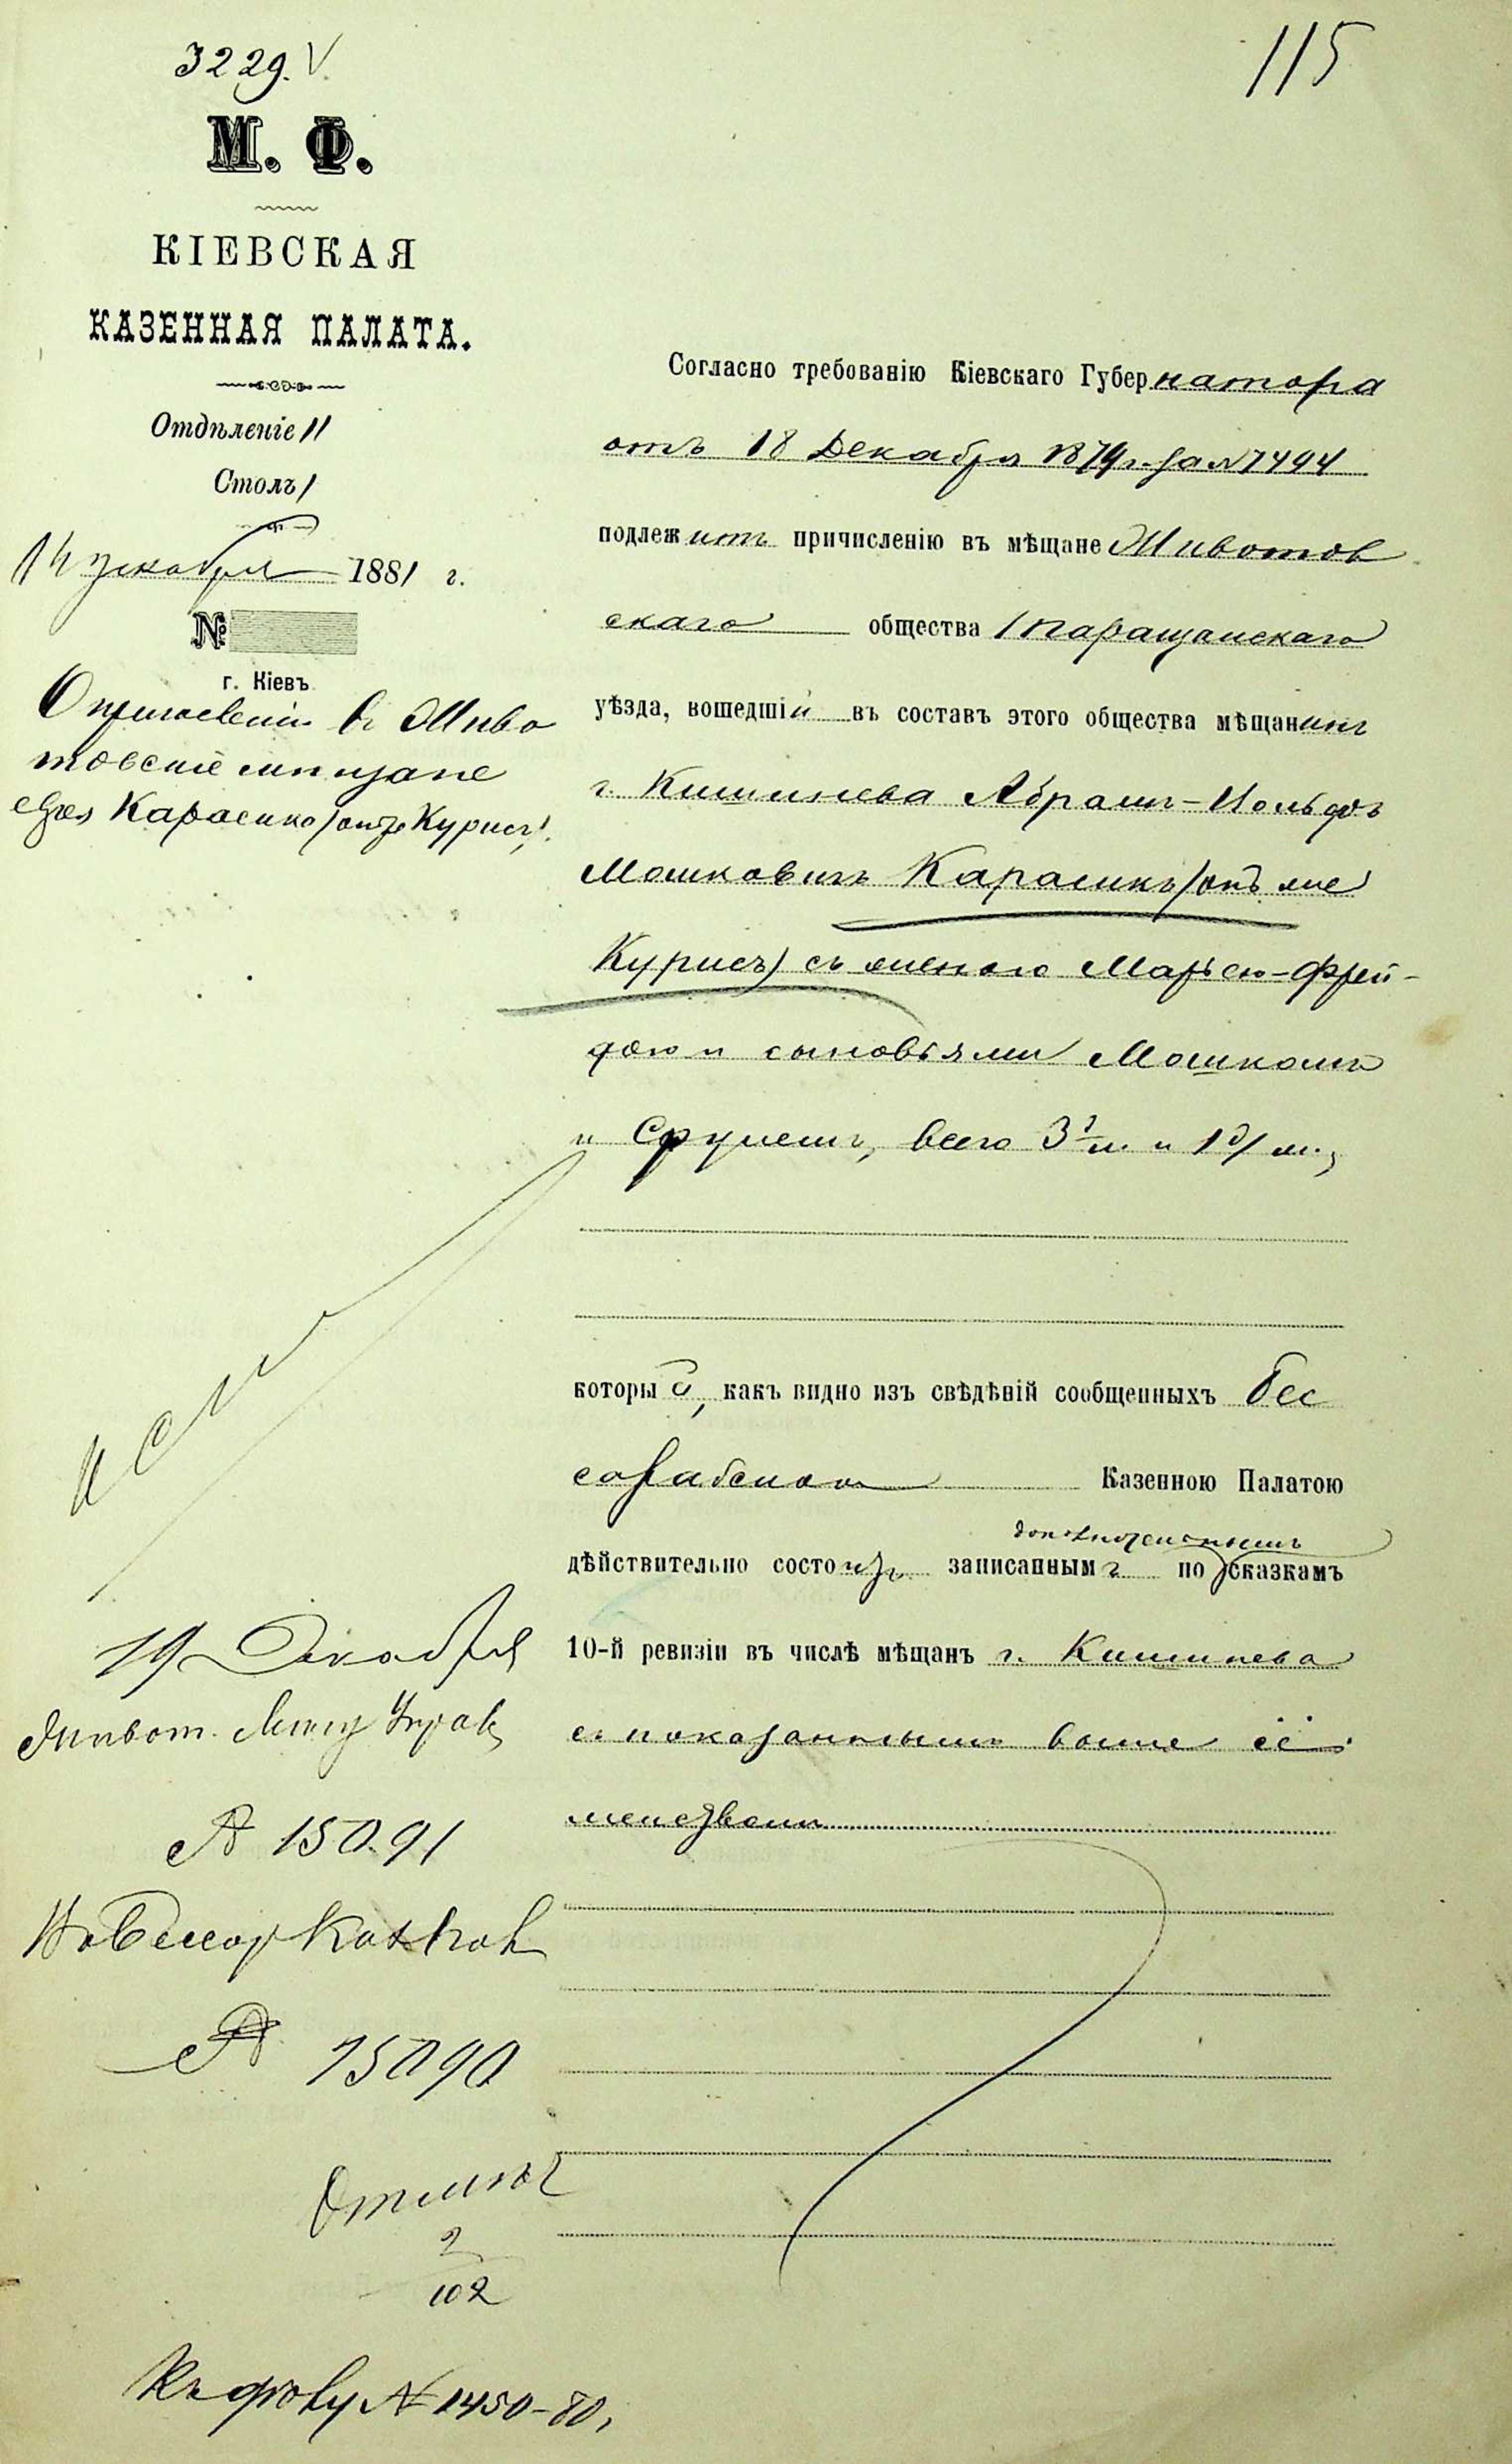 3229.
115
М. Ф.
КІЕВСКАЯ
КАЗЕННАЯ ПАЛАТА.
Отдѣленіе II
Столъ 1
14 декабря 1881 г.
№
г. Кіевъ
О причисленіи въ Живо
товскіе мѣщане
Карасика (онъ же Курисъ).
Согласно требованію Кіевскаго Губернатора
отъ 18 Декабря 1879 г. за № 7494
подлежитъ причисленію въ мѣщане Животов
скаго общества Таращанскаго
уѣзда, вошедшій въ составъ этого общества мѣщанинъ
г. Кишинева Абрамъ-
Мошковичъ Карасикъ (онъ же
Курисъ) съ женою Марьею-Фрей-
дою и сыновьями Мошкомъ
и Сруллемъ, всего 3 м. и 1 ж.,
который, какъ видно изъ свѣдѣній сообщенныхъ Бес
сарабскою Казенною Палатою
дополнительнымъ
дѣйствительно состоитъ записаннымъ по сказкамъ
10-й ревизіи въ числѣ мѣщанъ г. Кишинева
съ показаннымъ выше се
мействомъ
19 Декабря
Живот. Мѣщ Управ
№ 15091
Въ Бессар Каз Пал
№ 15090
2
102
Къ дѣлу № 1450-80.